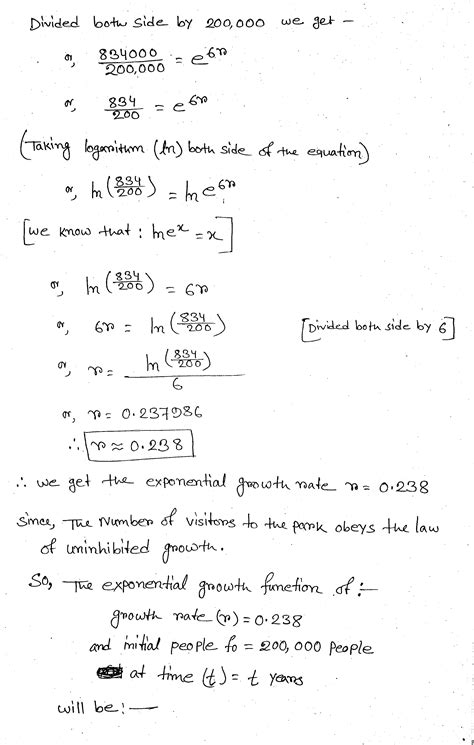 Divided both side by 200,000 we get -
or, 834000/200,000 = e^6r
or, 834/200 = e^6r
(Taking logarithm (ln) both side of the equation)
or, ln(834/200) = ln e^6r
[we know that : ln e^x = x]
or, ln(834/200) = 6r
or, 6r = ln(834/200) [Divided both side by 6]
or, r = ln(834/200)/6
or, r = 0.237986
∴ r ≈ 0.238
∴ we get the exponential growth rate r = 0.238
Since, The Number of visitors to the park obeys the law
of uninhibited growth.
So, The exponential growth function of :—
growth rate (r) = 0.238
and initial people fo = 200,000 people
at time (t) = t years
will be : —